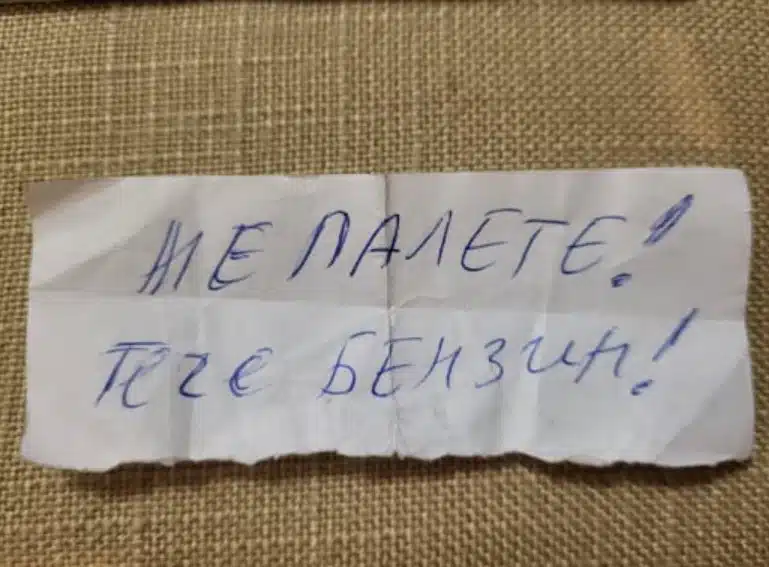 НЕ ПАЛЕТЕ!
ТЕЧЕ БЕНЗИН!